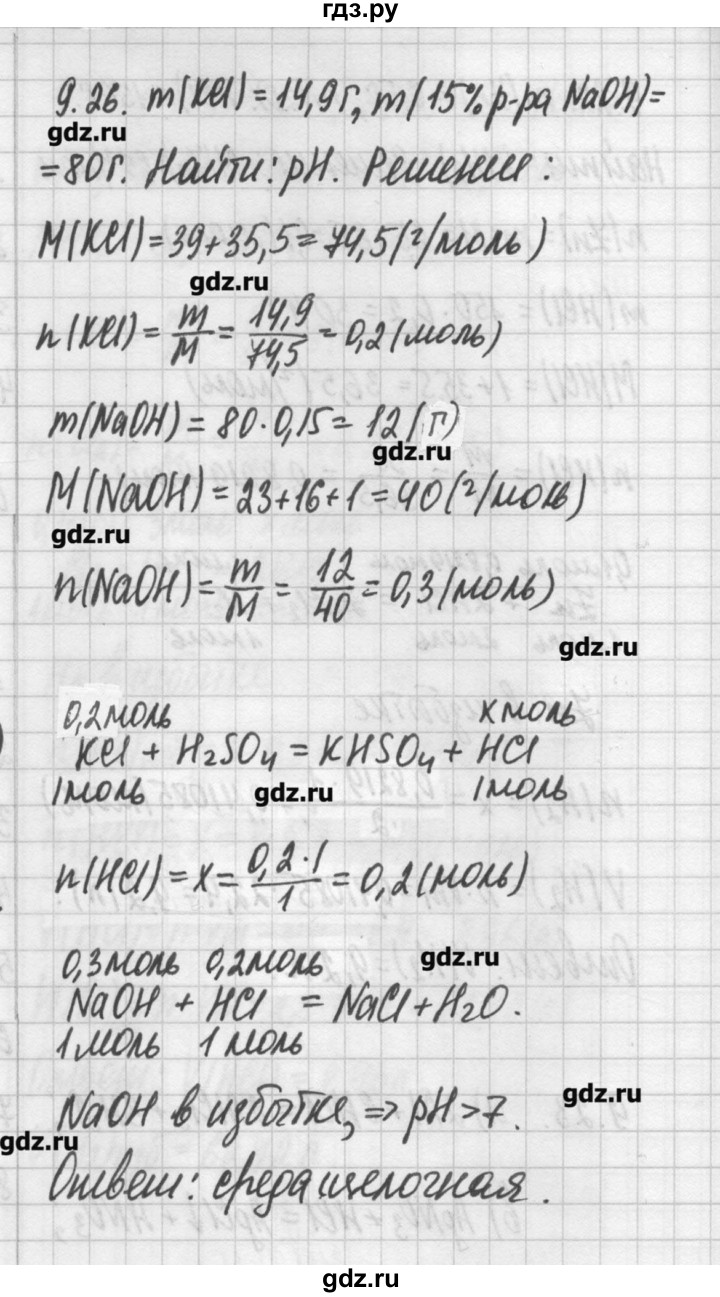 гдз.ру
9.26. m(KCl)=14,9г, m(15% р-ра NaOH)=
gdz.ru
=80г. Найти: pH. Решение:
M(KCl)=39+35,5=74,5(г/моль)
gdz.ru
n(KCl)=m/M=14,9/74,5=0,2(моль)
m(NaOH)=80·0,15=12(г)
gdz.ru
M(NaOH)=23+16+1=40(г/моль)
gdz.ru
n(NaOH)=m/M=12/40=0,3(моль)
gdz.ru
0,2моль xмоль
KCl+H₂SO₄=KHSO₄+HCl
1моль gdz.ru 1моль
n(HCl)=x=0,2·1/1=0,2(моль)
0,3моль 0,2моль gdz.ru
NaOH+HCl=NaCl+H₂O.
1моль 1моль
NaOH в избытке,=>pH>7.
gdz.ru
gdz.ru
Ответ: среда щелочная.
gdz.ru